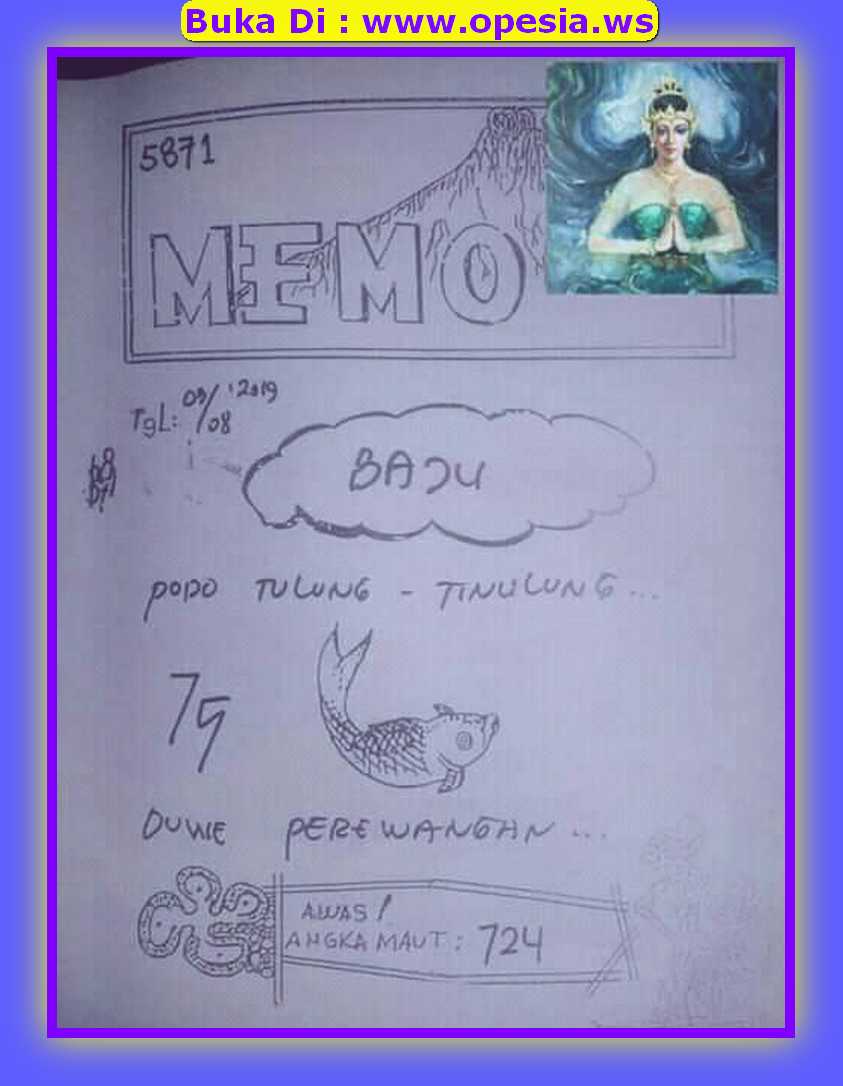 Buka Di : www.opesia.ws
5871
MEMO
TgL: 03/08 '2019
BAJU
PODO TULUNG - TINULUNG...
75
DUWE PEREWANGAN...
AWAS!
ANGKA MAUT : 724